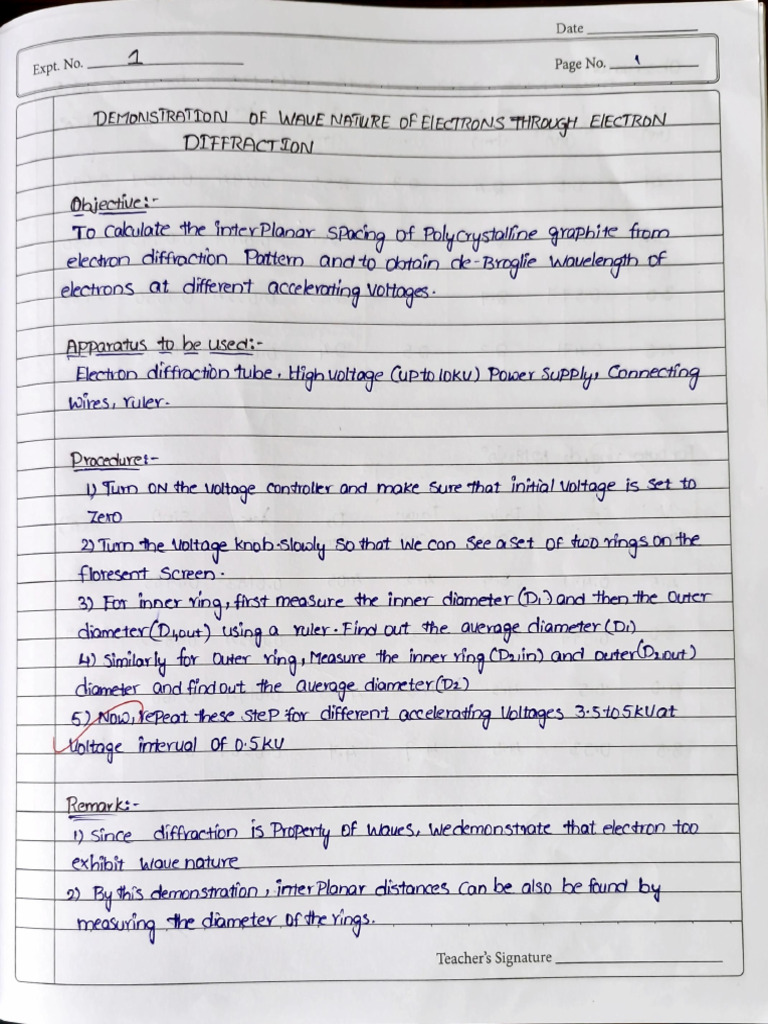 Date
Expt. No. 1
Page No. 1
DEMONSTRATION OF WAVE NATURE OF ELECTRONS THROUGH ELECTRON
DIFFRACTION
Objective:-
To calculate the interplanar spacing of Polycrystalline graphite from
electron diffraction Pattern and to obtain de-Broglie wavelength of
electrons at different accelerating voltages.
Apparatus to be used:-
Electron diffraction tube, High voltage (up to 10KV) Power supply, Connecting
wires, ruler.
Procedure:-
1) Turn ON the voltage controller and make sure that initial voltage is set to
zero
2) Turn the voltage knob slowly so that we can see a set of two rings on the
floresent screen.
3) For inner ring, first measure the inner diameter (D1) and then the outer
diameter (D1,out) using a ruler. Find out the average diameter (D1)
4) Similarly for outer ring, Measure the inner ring (D2in) and outer (D2out)
diameter and find out the average diameter (D2)
5) Now, repeat these step for different accelerating voltages 3.5 to 5kV at
voltage interval of 0.5kV
Remark:-
1) Since diffraction is Property of waves, we demonstrate that electron too
exhibit wave nature
2) By this demonstration, interplanar distances can be also be found by
measuring the diameter of the rings.
Teacher's Signature